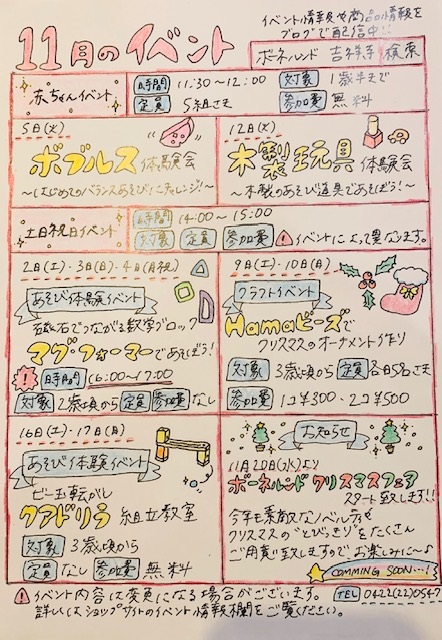 11月のイベント
イベント情報や商品情報を
ブログで配信中!!
ボーネルンド 吉祥寺 検索
赤ちゃんイベント
時間 11:30~12:00 対象 1歳半まで
定員 5組さま 参加費 無料
5日(火)
ボブルス 体験会
~はじめてのバランスあそびにチャレンジ!~
12日(火)
木製玩具 体験会
~木製のあそび道具であそぼう!~
土日祝日イベント
時間 14:00~15:00
対象 定員 参加費 イベントによって異なります。
2日(土)・3日(日)・4日(月祝)
あそび体験イベント
磁石でつながる数学ブロック
マグ・フォーマーであそぼう!
時間 16:00~17:00
対象 2歳頃から 定員 参加費 なし
9日(土)・10日(日)
クラフトイベント
Hamaビーズで
クリスマスのオーナメント作り
対象 3歳頃から 定員 各日5名さま
参加費 1コ¥300・2コ¥500
16日(土)・17日(日)
あそび体験イベント
ビー玉転がし
クアドリラ 組立教室
対象 3歳頃から
定員 なし 参加費 無料
お知らせ
11月20日(水)より
ボーネルンド クリスマスフェア
スタート致します!!
今年も素敵なノベルティや
クリスマスの"とびっきり"をたくさん
ご用意致しますのでお楽しみに~♪
COMMING SOON...!
イベント内容は変更になる場合がございます。
詳しくはショップサイトのイベント情報欄をご覧ください。
TEL 0422(22)0547